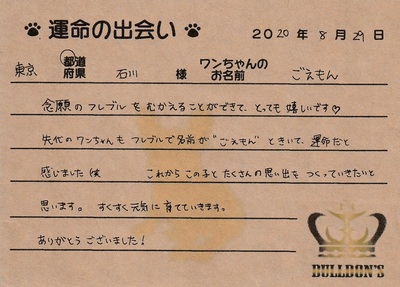 運命の出会い
2020年8月29日
東京 都道府県 石川 様 ワンちゃんのお名前 ごえもん
念願のフレブルをむかえることができて、とっても嬉しいです♡
先代のワンちゃんもフレブルで名前が"ごえもん"ときいて、運命だと
感じました(笑 これからこの子とたくさんの思い出をつくっていきたいと
思います。すくすく元気に育てていきます。
ありがとうございました！
BULLDON'S